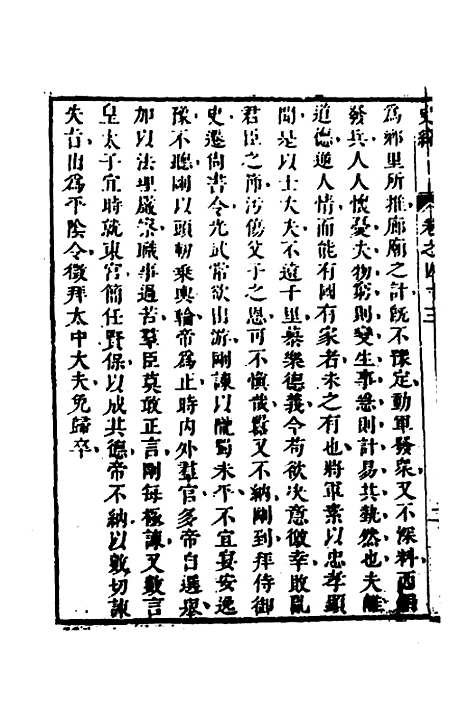 史緯 卷之四十三 二
爲鄉里所推廊廟之計旣不豫定動軍發衆又不深料西州
發兵人人懷憂夫物窮則變生事急則計易其埶然也夫離
道德逆人情而能有國有家者未之有也將軍素以忠孝顯
聞是以士大夫不遠千里慕樂德義今苟欲決意徼幸敗亂
君臣之節污傷父子之恩可不慎哉囂又不納剛到拜侍御
史遷尚書令光武常欲出游剛諫以隴蜀未平不宜宴安逸
豫不聽剛以頭軔乘輿輪帝爲止時內外羣官多帝自選舉
加以法理嚴察職事過苦羣臣莫敢正言剛每極諫又數言
皇太子宜時就東宮簡任賢保以成其德帝不納以數切諫
失旨出爲平陰令徵拜太中大夫免歸卒